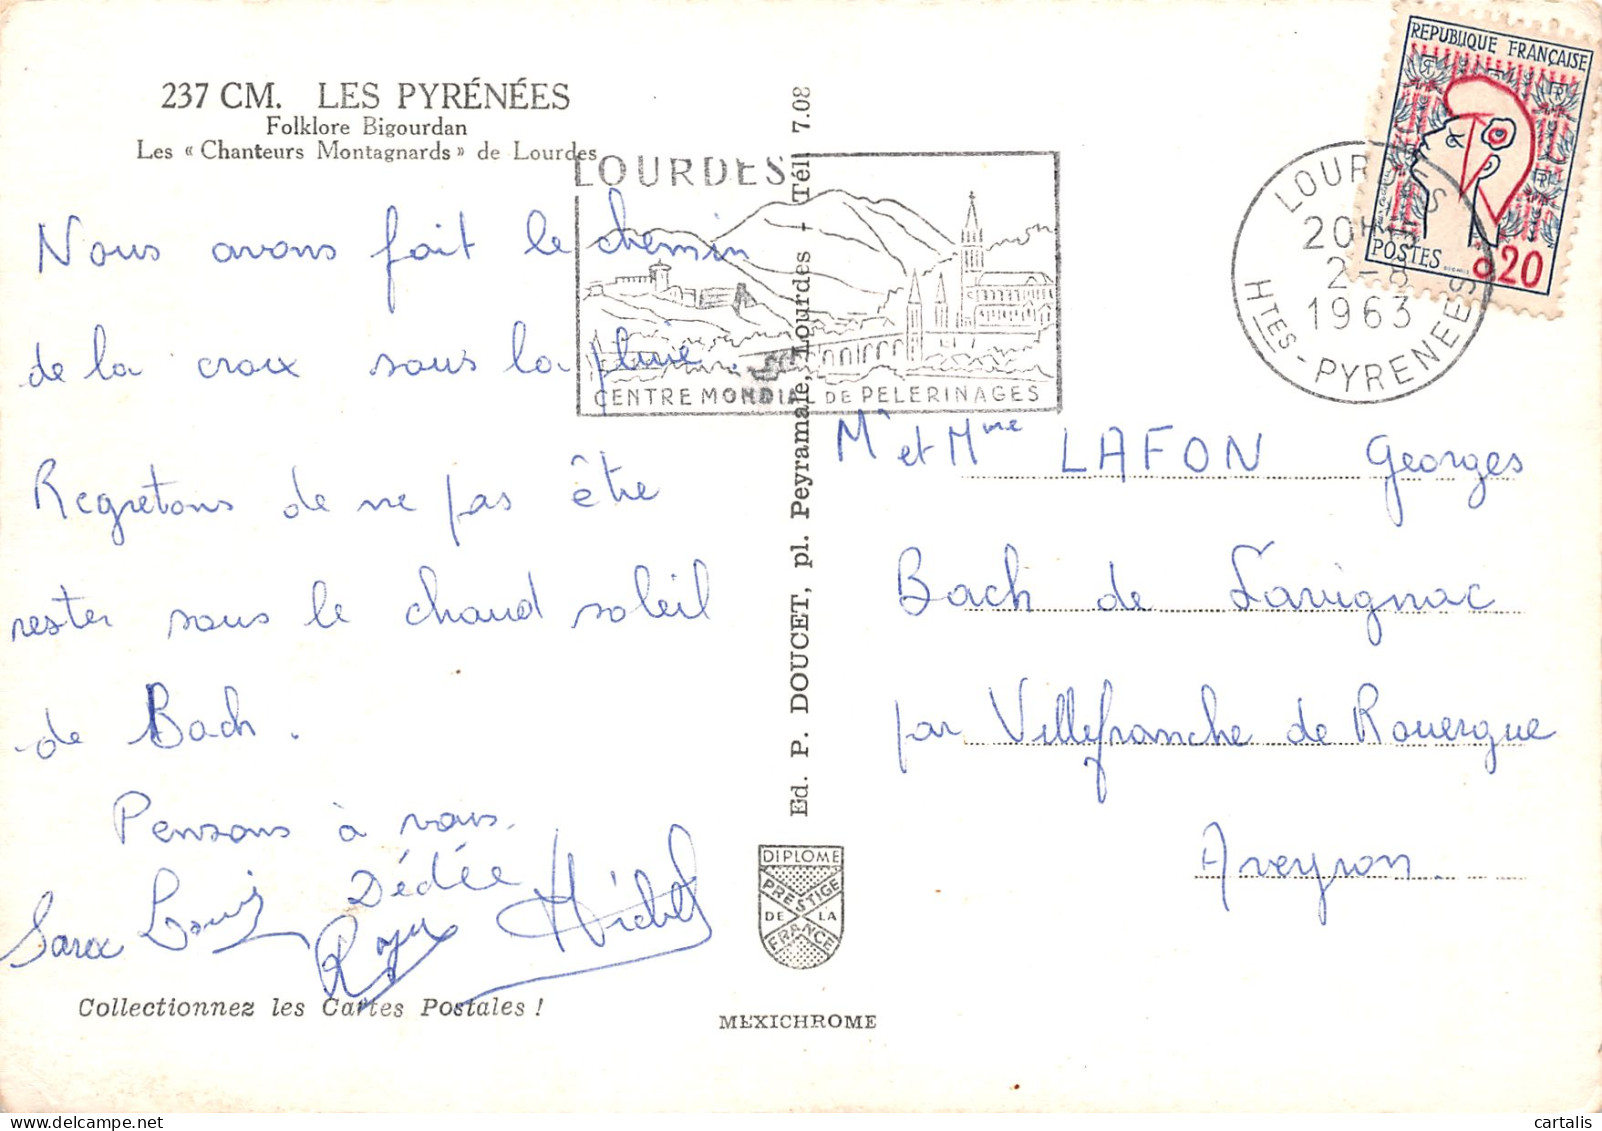 237 CM. LES PYRÉNÉES
Folklore Bigourdan
Les « Chanteurs Montagnards » de Lourdes
Nous avons fait le chemin
de la croix sous la pluie.
Regretons de ne pas être
rester sous le chaud soleil
de Bach.
Pensons à vous.
Dédée
Louis
Roger
Michel
Collectionnez les Cartes Postales !
LOURDES
CENTRE MONDIAL DE PELERINAGES
Ed. P. DOUCET, pl. Peyramale, Lourdes - Tél. 7.08
DIPLOME
PRESTIGE
DE LA
FRANCE
MEXICHROME
REPUBLIQUE FRANÇAISE
POSTES
0,20
LOURDES
2-8
1963
HTES-PYRENEES
Mr et Mme LAFON Georges
Bach de Savignac
par Villefranche de Rouergue
Aveyron.
cartalis